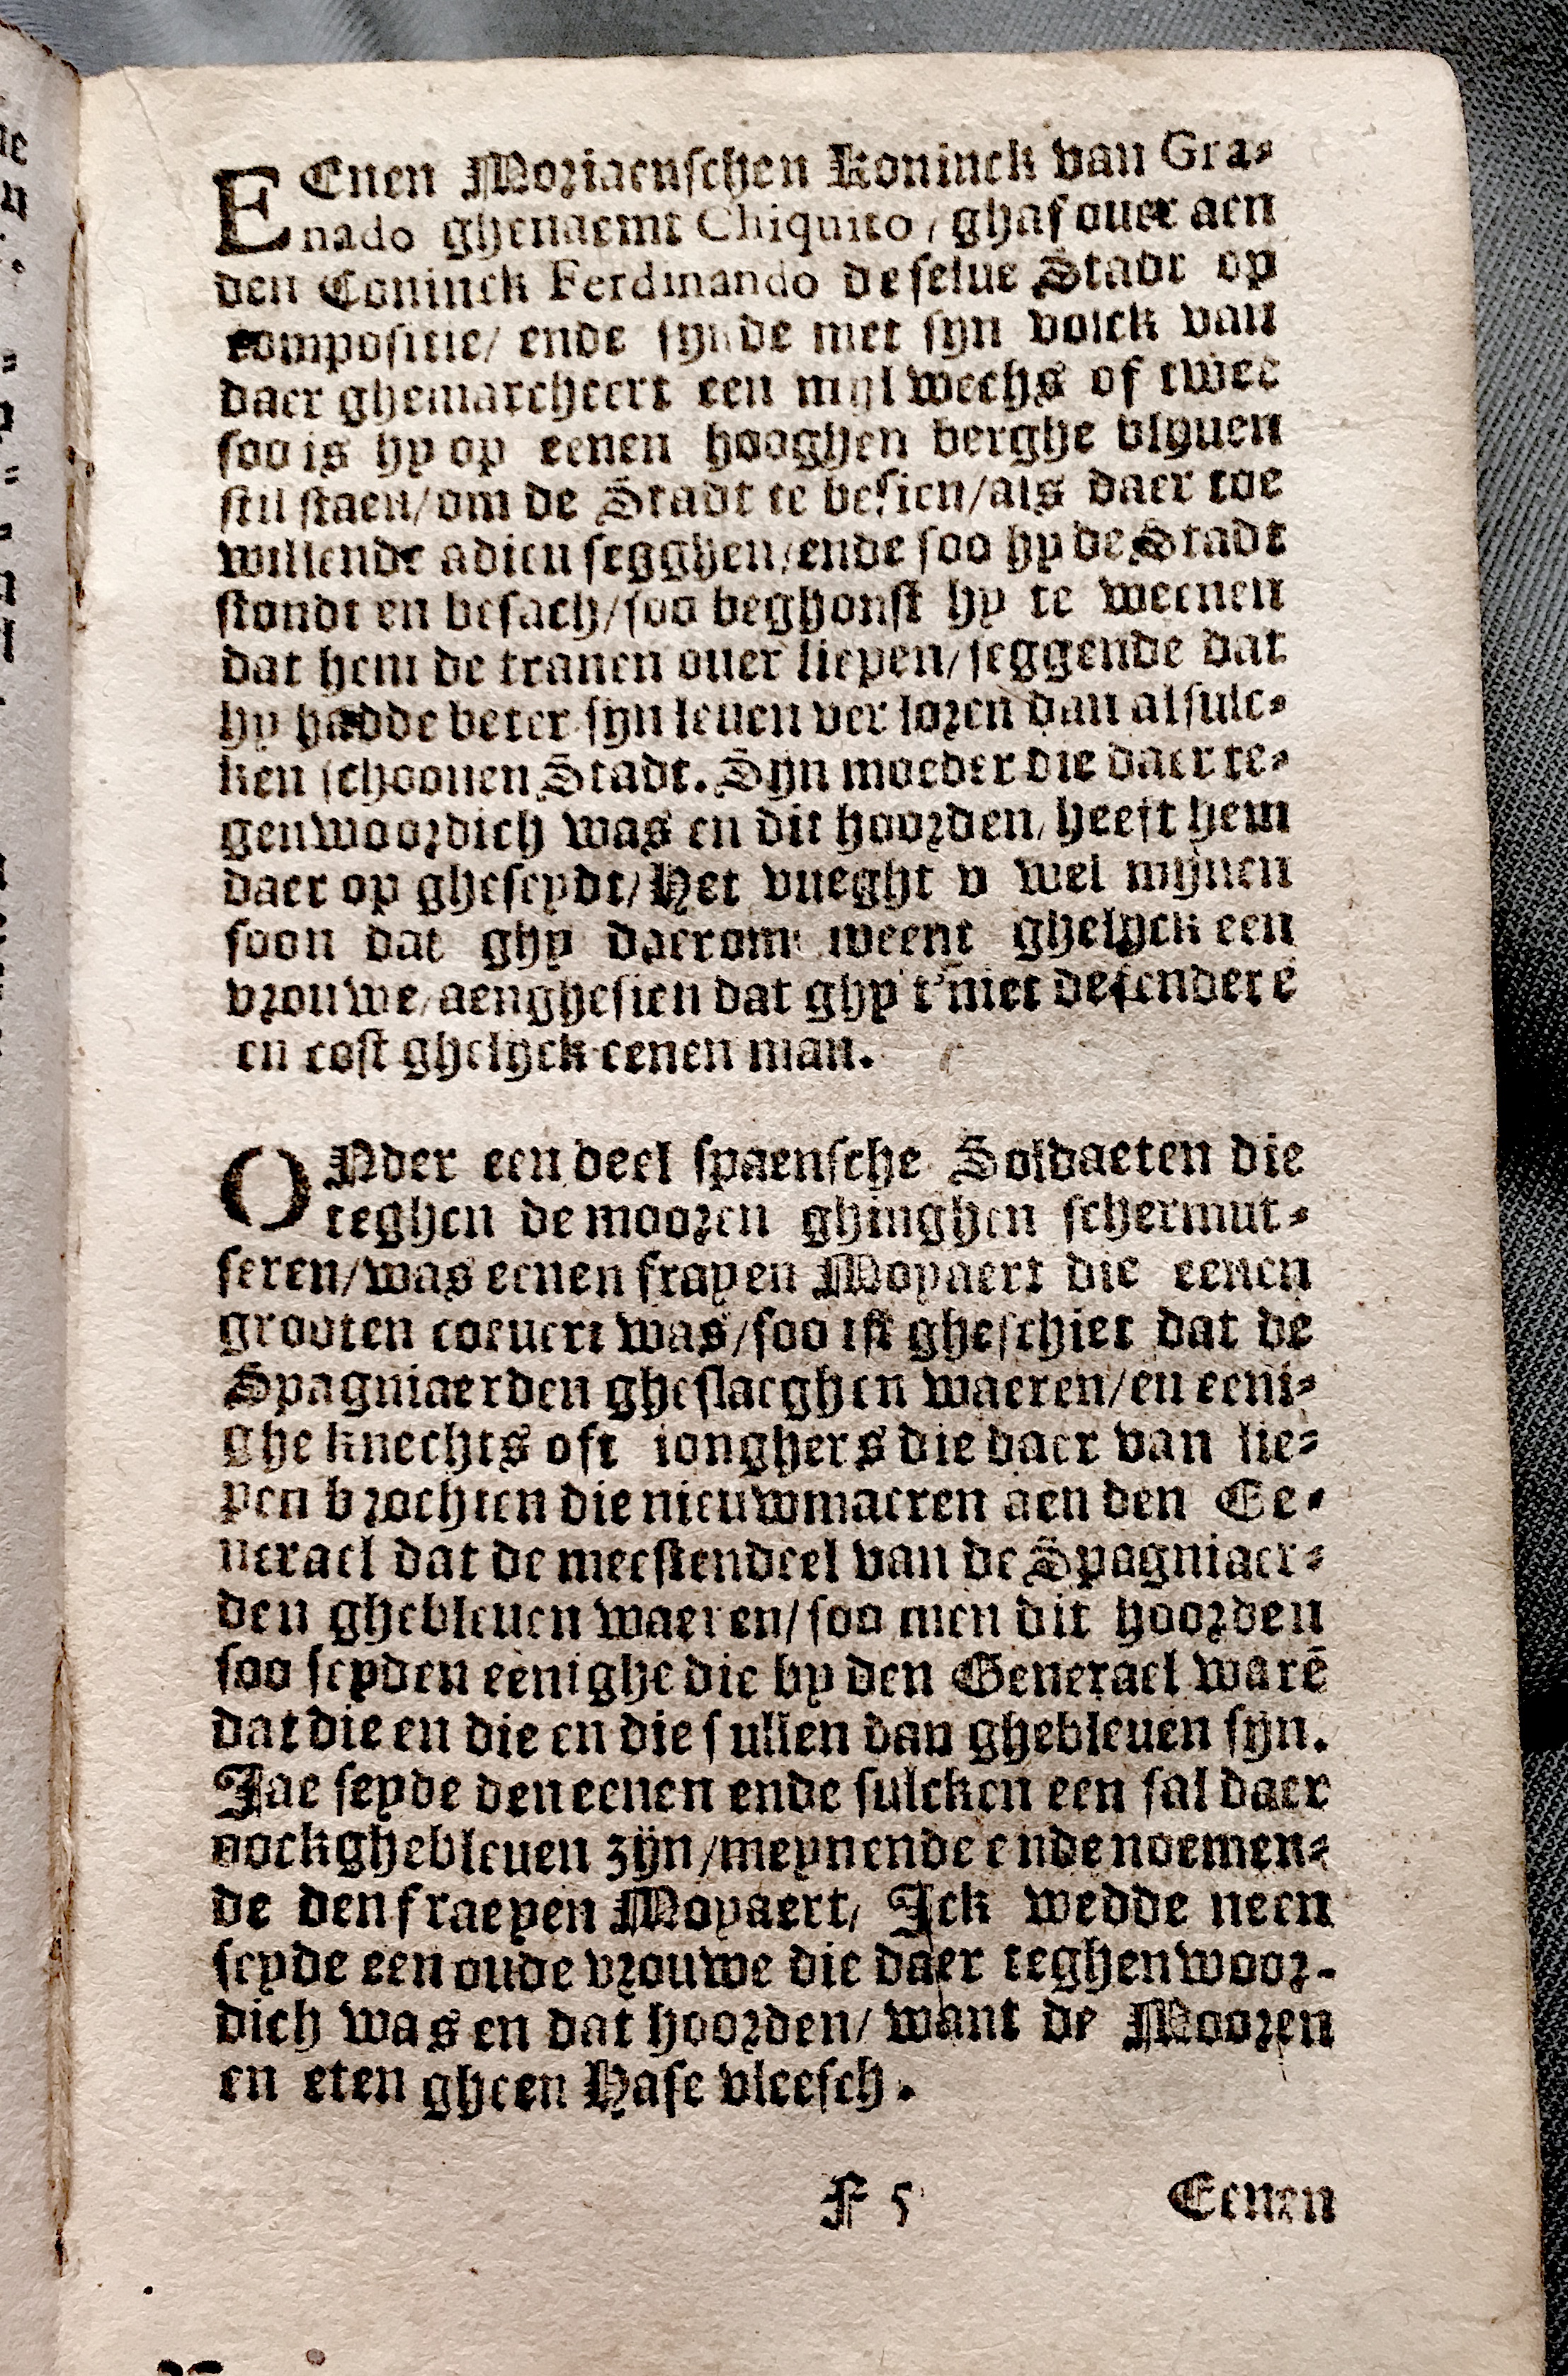 EEnen Moriaenschen Koninck van Gra-
nado ghenaemt Chiquito / ghaf ouer aen
den Coninck Ferdinando de selue Stadt op
compositie / ende synde met syn volck van
daer ghemarcheert een myl wechs of twee
soo is hy op eenen hooghen berghe blyuen
stil staen / om de Stadt te besien / als daer toe
willende adieu segghen / ende soo hy de Stadt
stondt en besach / soo beghonst hy te weenen
dat hem de tranen ouer liepen / seggende dat
hy hadde beter syn leuen ver loren dan alsulc-
ken schoonen Stadt. Syn moeder die daer te-
genwoordich was en dit hoorden / heeft hem
daer op gheseydt / Het vueght v wel mijnen
soon dat ghy daerom weent ghelyck een
vrouwe / aenghesien dat ghy t'niet defendere
en cost ghelyck eenen man.
ONder een deel spaensche Soldaeten die
teghen de mooren ghinghen schermut-
seren / was eenen frayen Moyaert die eenen
grooten coeuert was / soo ist gheschiet dat de
Spagniaerden gheslaeghen waeren / en eeni-
ghe knechts oft ionghers die daer van lie-
pen brochten die nieuwmaeren aen den Ge-
nerael dat de meestendeel van de Spagniaer-
den ghebleuen waeren / soo men dit hoorden
soo seyden eenighe die by den Generael warē
dat die en die en die sullen dan ghebleuen syn.
Jae seyde den eenen ende sulcken een sal daer
oock ghebleuen zijn / meynende ende noemen-
de den fraeyen Moyaert / Ick wedde neen
seyde een oude vrouwe die daer teghenwoor-
dich was en dat hoorden / want de Mooren
en eten gheen Hase vleesch.
F 5 Eenen